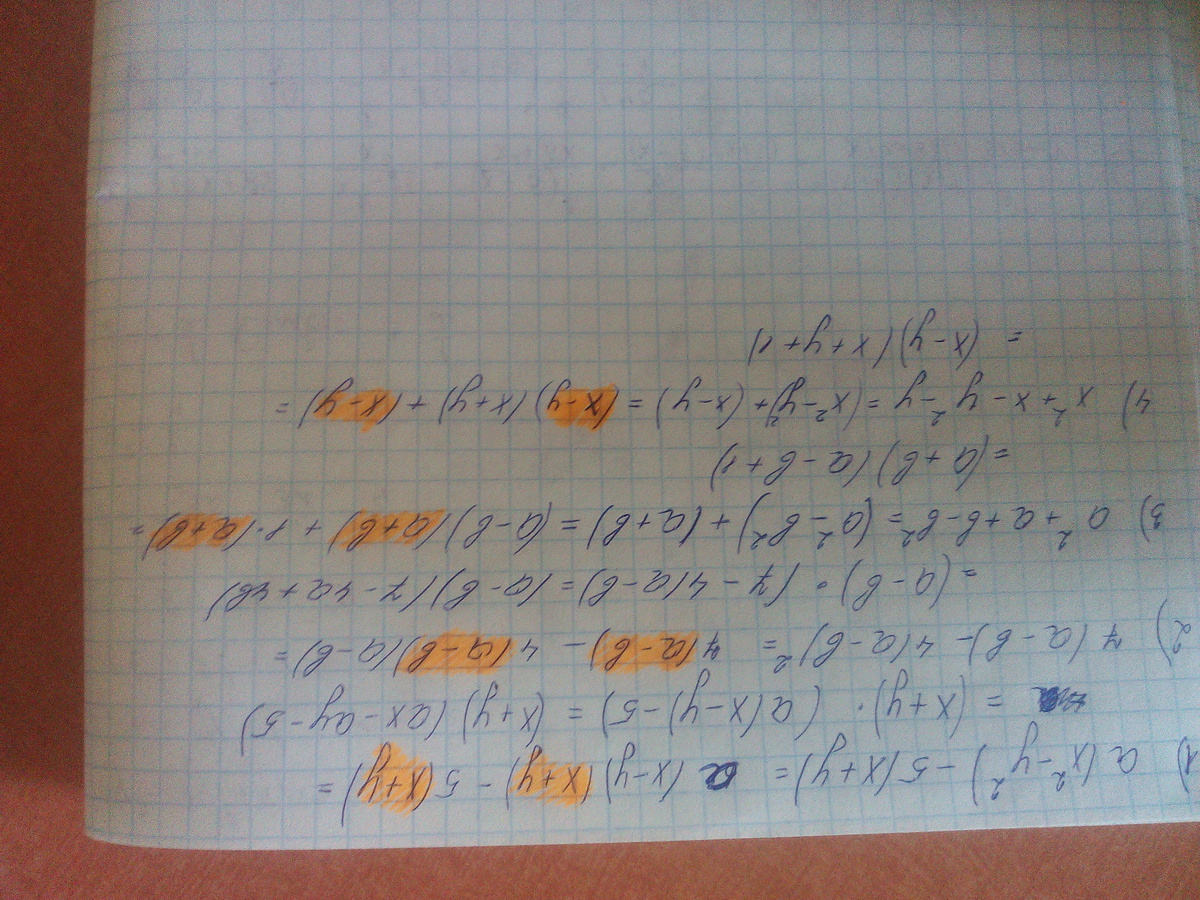 1) a(x²-y²) -5(x+y)= a(x-y)(x+y) - 5(x+y) =
= (x+y)·(a(x-y)-5) = (x+y)(ax-ay-5)
2) 7(a-в)-4(a-в)² = 7(a-в) - 4(a-в)(a-в)=
=(a-в)·(7-4(a-в)=(a-в)(7-4a+4в)
3) a²+a+в-в²=(a²-в²)+(a+в)=(a-в)(a+в)+1·(a+в)=
=(a+в)(a-в+1)
4) x²+x-y²-y=(x²-y²)+(x-y)=(x-y)(x+y)+(x-y)=
= (x-y)(x+y+1)